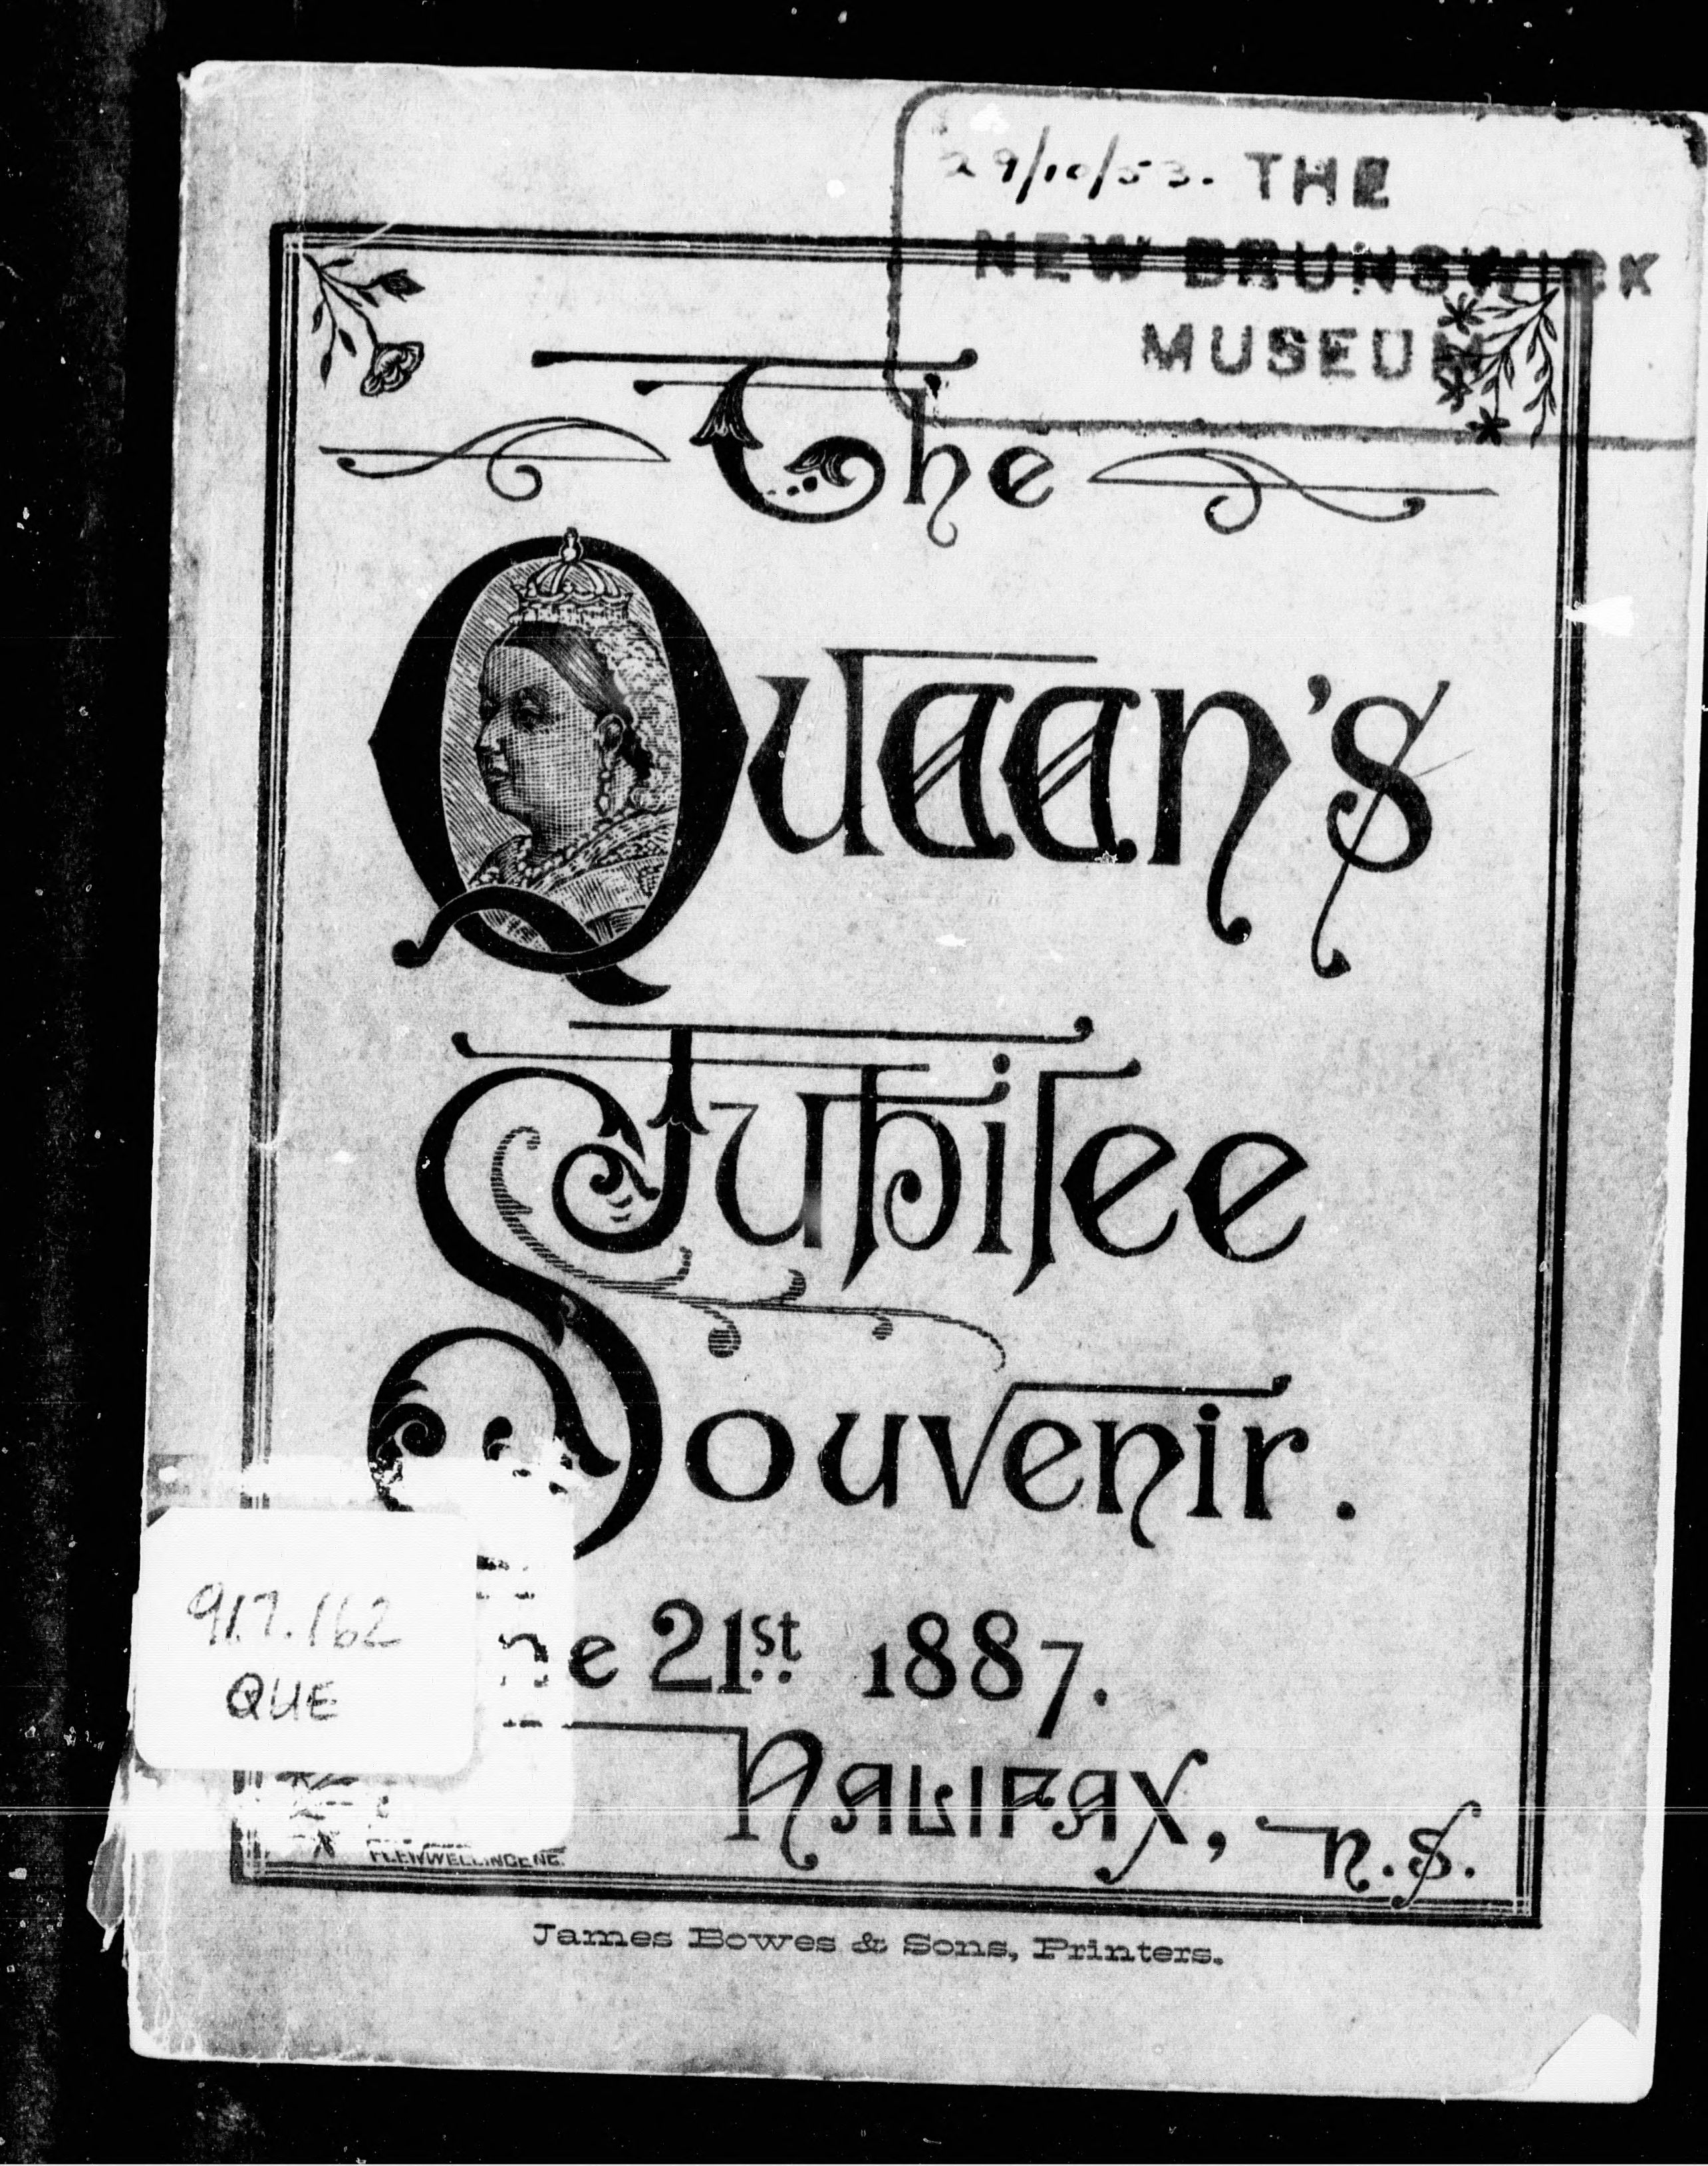 29/10/53. THE
NEW BRUNSWICK
MUSEUM
The
Queen's
Jubilee
Souvenir.
ne 21st 1887.
HALIFAX, N.S.
917.162
QUE
FLEWWELLING ENG.
James Bowes & Sons, Printers.